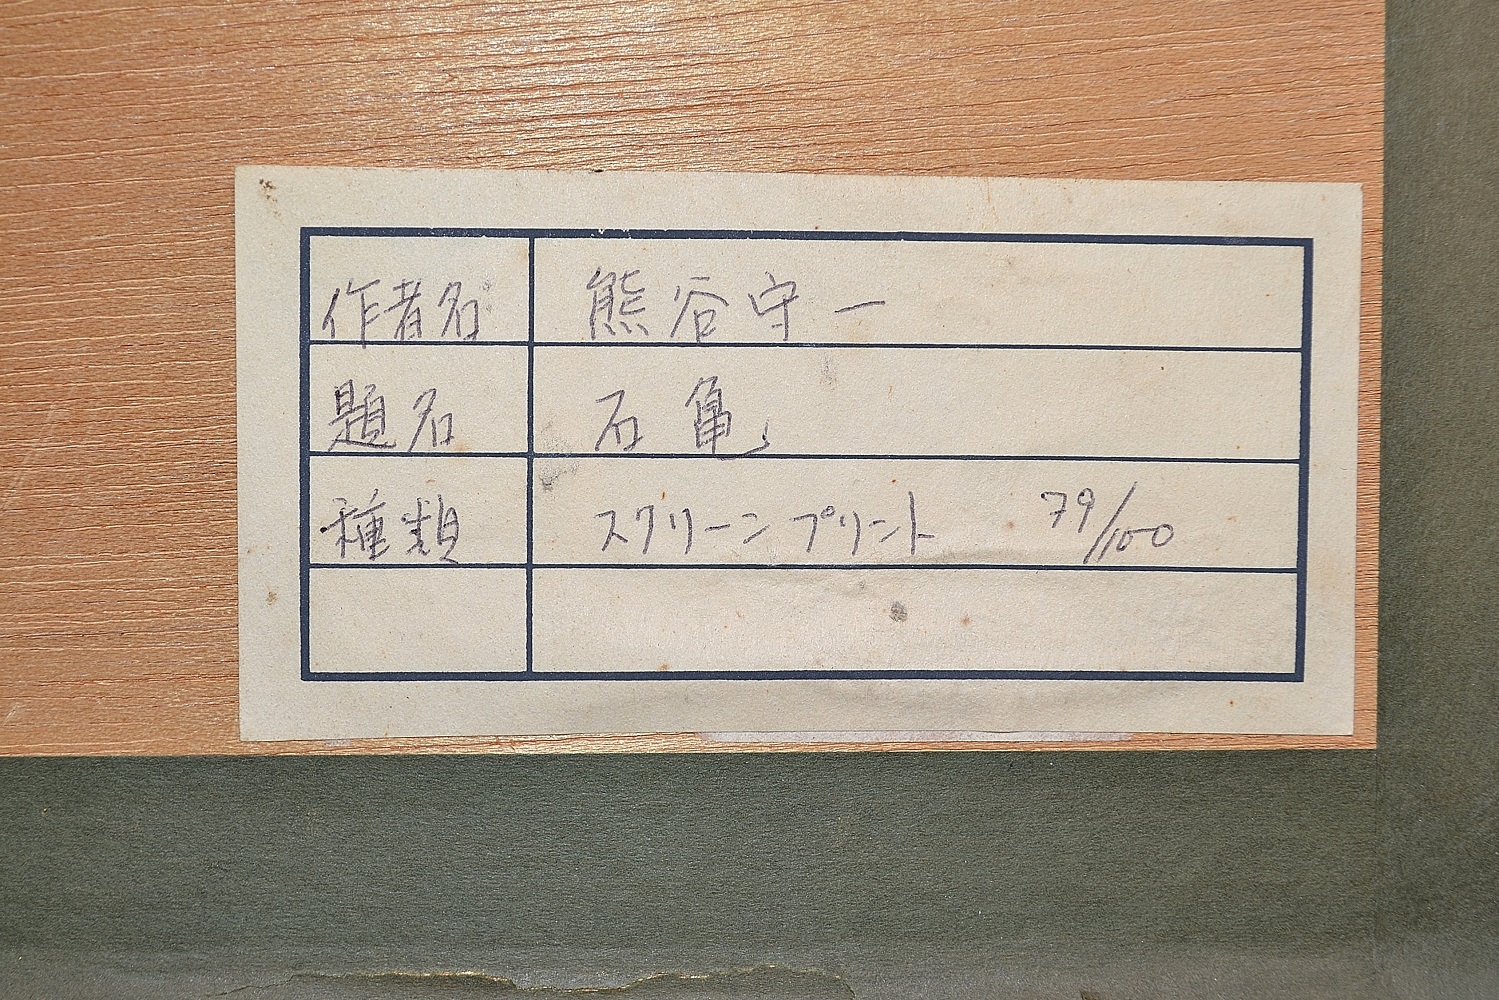 作者名 熊谷守一
題名 石亀
種類 スクリーンプリント 79/100